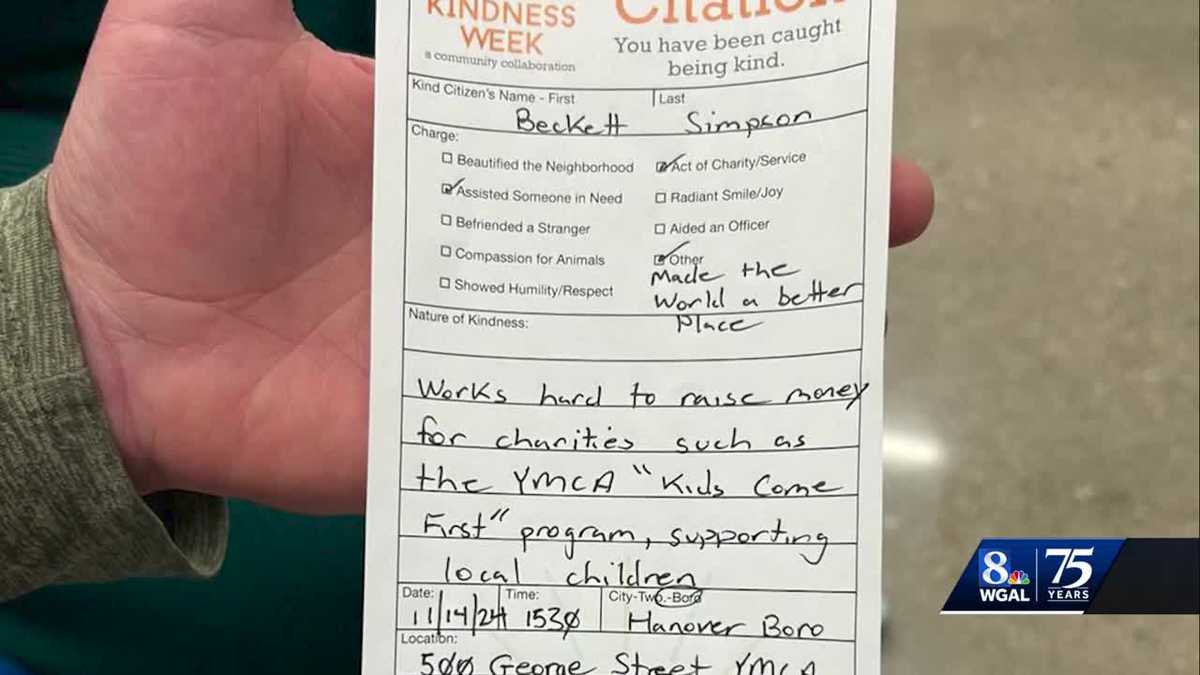 KINDNESS
WEEK
a community collaboration
Citation
You have been caught
being kind.
Kind Citizen's Name - First
Last
Beckett Simpson
Charge:
Beautified the Neighborhood
Assisted Someone in Need
Befriended a Stranger
Compassion for Animals
Showed Humility/Respect
Act of Charity/Service
Radiant Smile/Joy
Aided an Officer
Other
Made the
World a better
Place
Nature of Kindness:
Works hard to raise money
for charities such as
the YMCA "Kids Come
First" program, supporting
local children
Date:
11/14/24
Time:
1530
City-Twp.-Boro
Hanover Boro
Location:
500 George Street YMCA
8
WGAL
75
YEARS